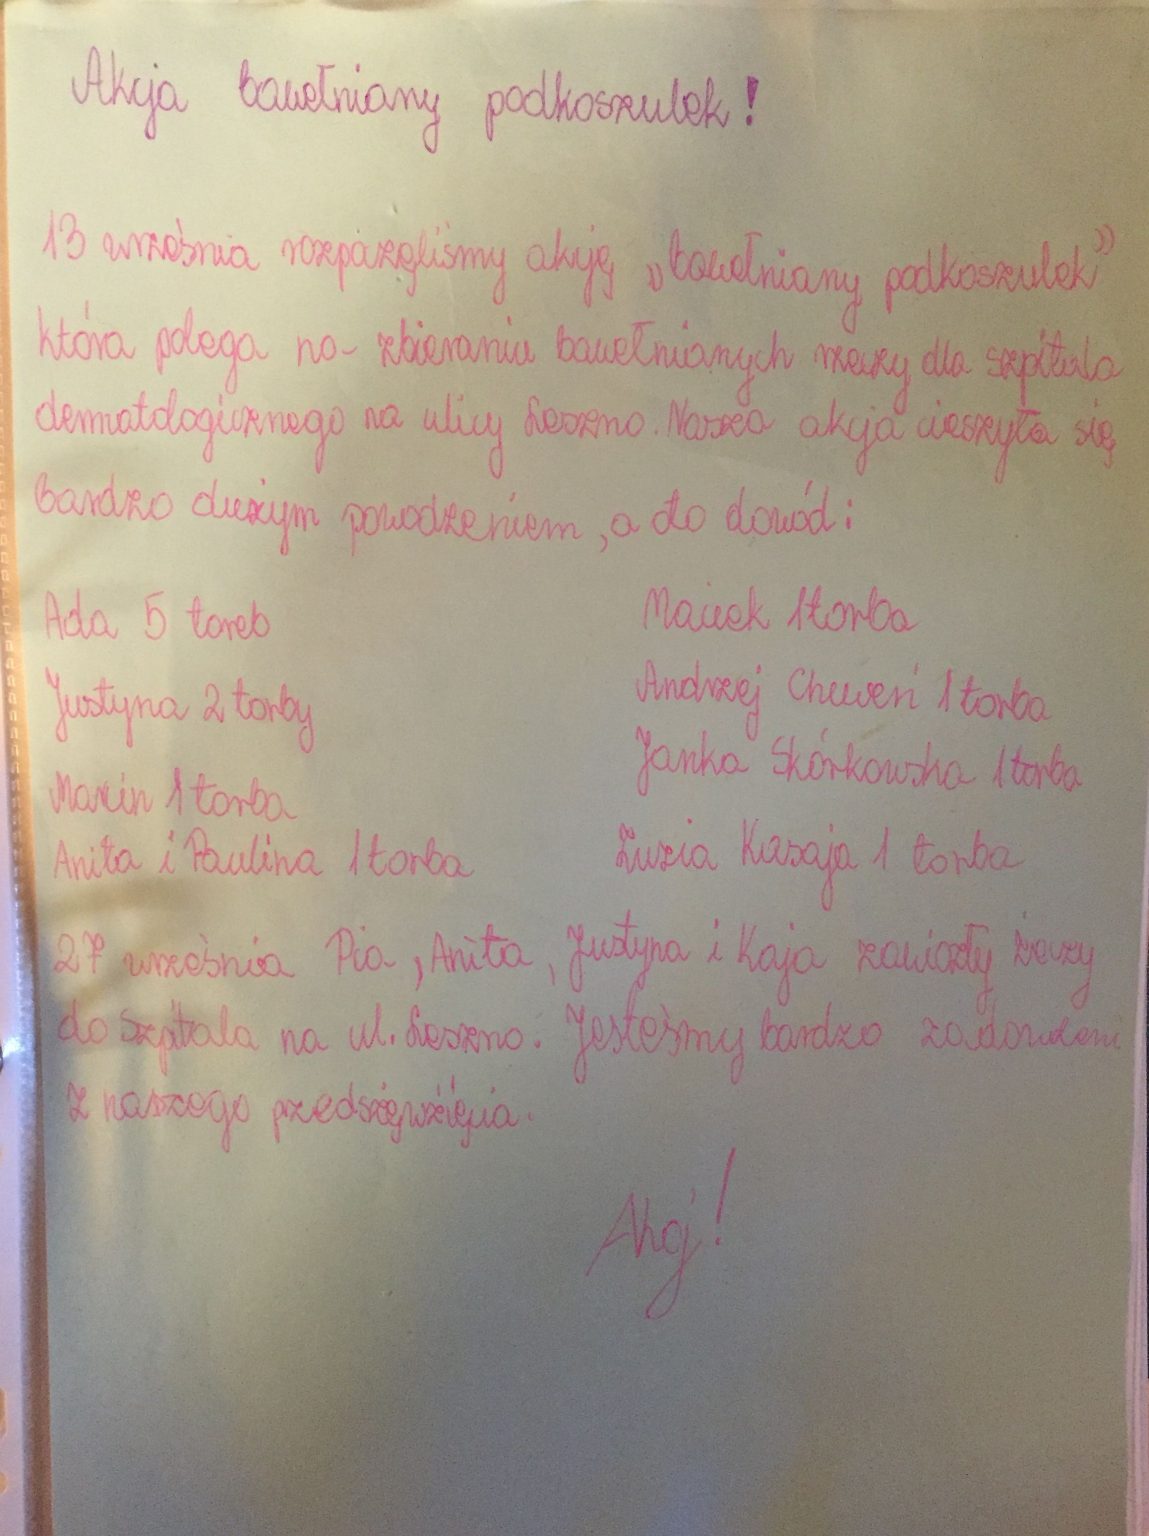 Akcja bawełniany podkoszulek!
13 września rozpaczęliśmy akcję „bawełniany podkoszulek”
która polega na- zbieraniu bawełnianych rzeczy dla szpitala
dermatologicznego na ulicy Leszno. Nasza akcja cieszyła się
bardzo dużym powodzeniem, a oto dowód:
Ada 5 toreb
Justyna 2 torby
Marcin 1 torba
Anita i Paulina 1 torba
Maciek 1 torba
Andrzej 1 torba
Janka Skórkowska 1 torba
Zuzia Kasaja 1 torba
27 września Pia, Anita, Justyna i Kaja zawiozły rzeczy
do szpitala na ul. Leszno. Jesteśmy bardzo zadowoleni
z naszego przedsięwzięcia.
Ahoj!